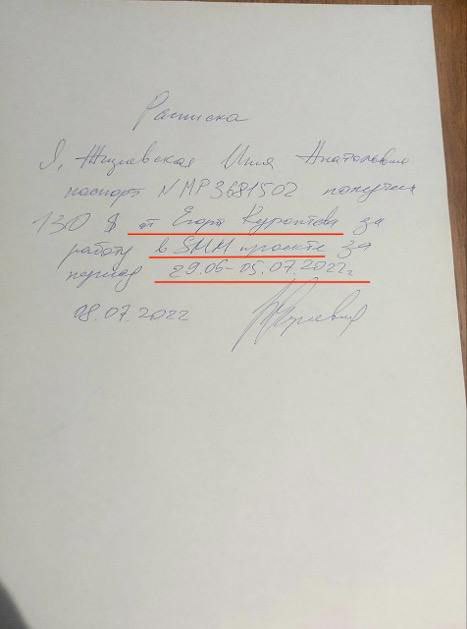 Расписка
Я, Жиглевская Инна Анатольевна
паспорт № МР3681502 получила
130 $ от Егора за
работу в SMM проекте за
период 29.06-05.07.2022г
08.07.2022